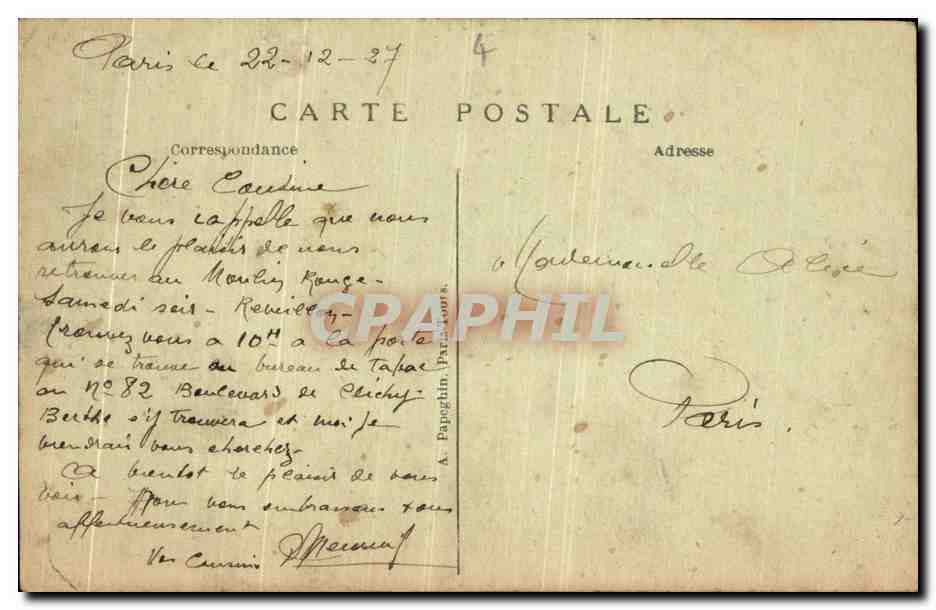 Paris le 22-12-27
4
CARTE POSTALE
Correspondance
Adresse
Chère Cousine
Je vous rappelle que nous
aurons le plaisir de nous
retrouver au Moulin Rouge-
Samedi soir - Reveillon-
trouvez vous a 10H a la porte
qui se trouve au bureau de tabac
au No 82 Boulevard de Clichy-
Berthe s'y trouvera et moi je
viendrai vous chercher-
A bientot le plaisir de vous
voir - Nous vous embrassons tous
affectueusement
Vos Cousins
A. Papeghin. Paris-Tours.
Mademoiselle Alice
Paris.
CPAPHIL